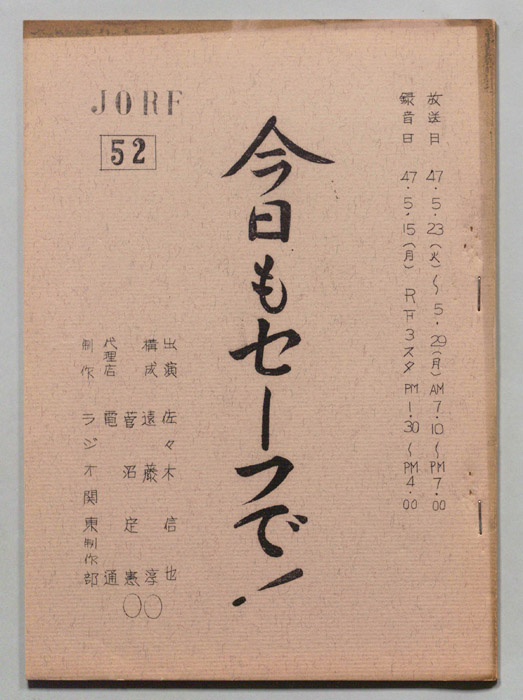 放送日 47.5.23(火)〜5.29(月) AM7.10〜PM7.00
録音日 47.5.15(月) RF3スタ PM1.30〜PM4.00
今日もセーフで!
JORF
52
出演 佐々木信也
構成 遠藤淳
菅沼定憲
代理店 電通
制作 ラジオ関東制作部